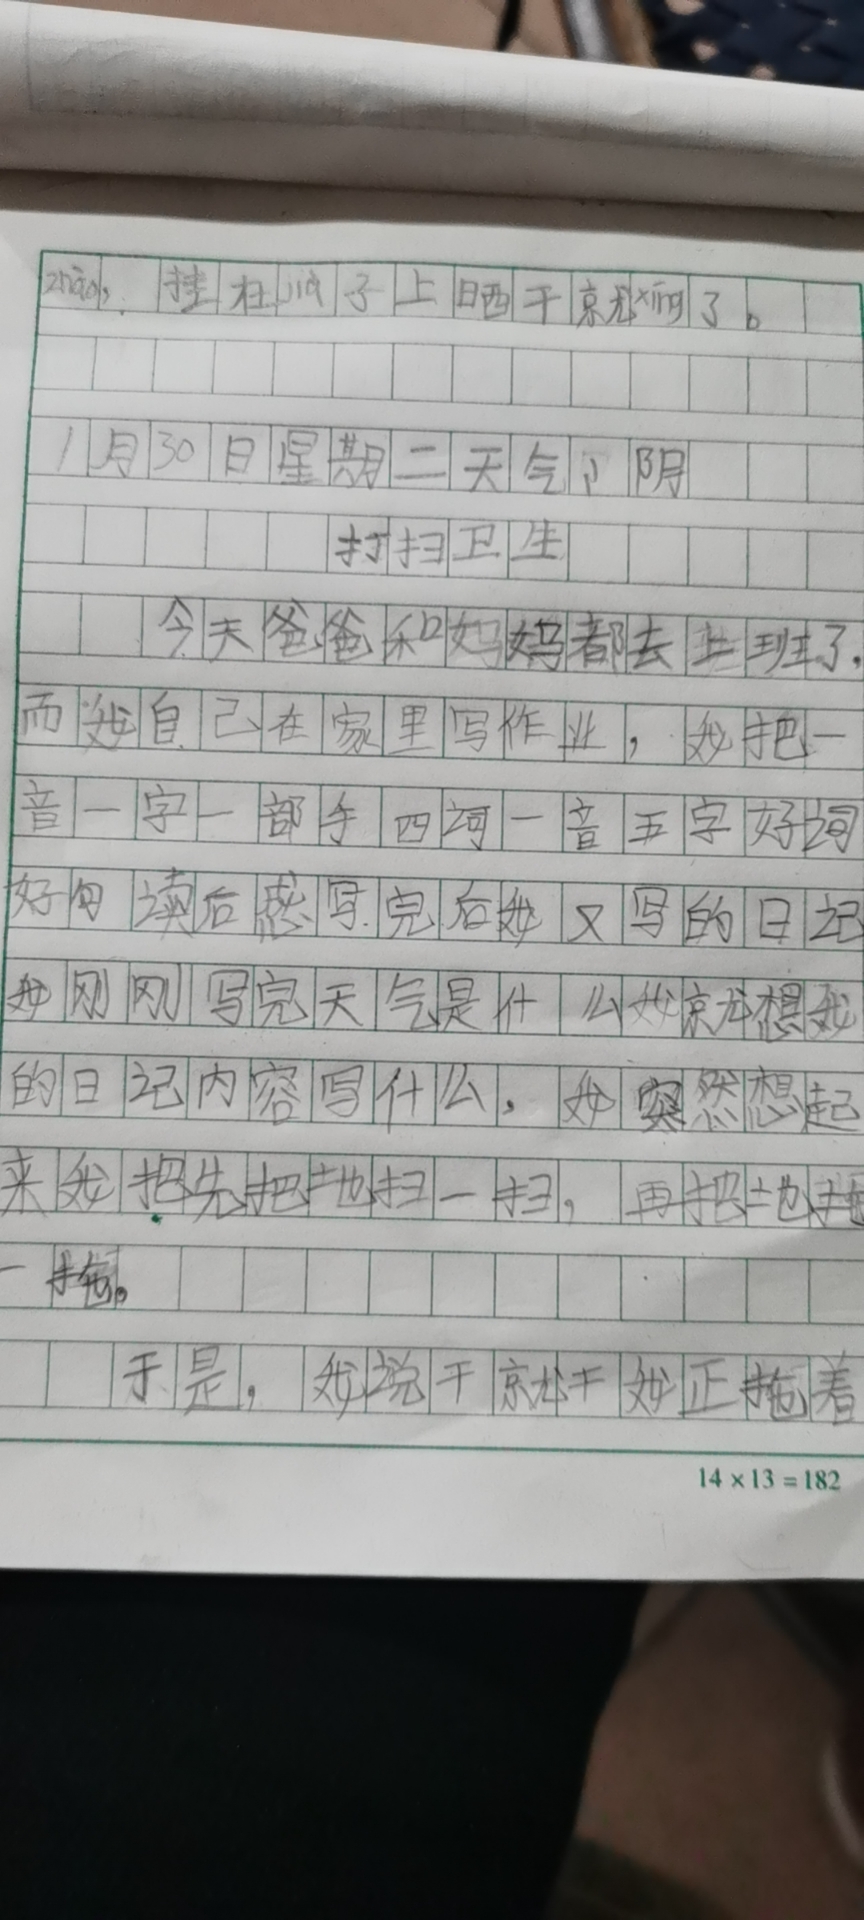 zhāo，挂在jià子上晒干就xíng了。
1月30日星期二天气：阴
打扫卫生
今天爸爸和妈妈都去上班了，
而我自己在家里写作业，我把一
音一字一部手四词一音五字好词
好句读后感写完后我又写的日记
我刚刚写完天气是什么我就想我
的日记内容写什么，我突然想起
来我把先把地扫一扫，再把地拖
一拖。
于是，我说干就干我正拖着
14×13=182